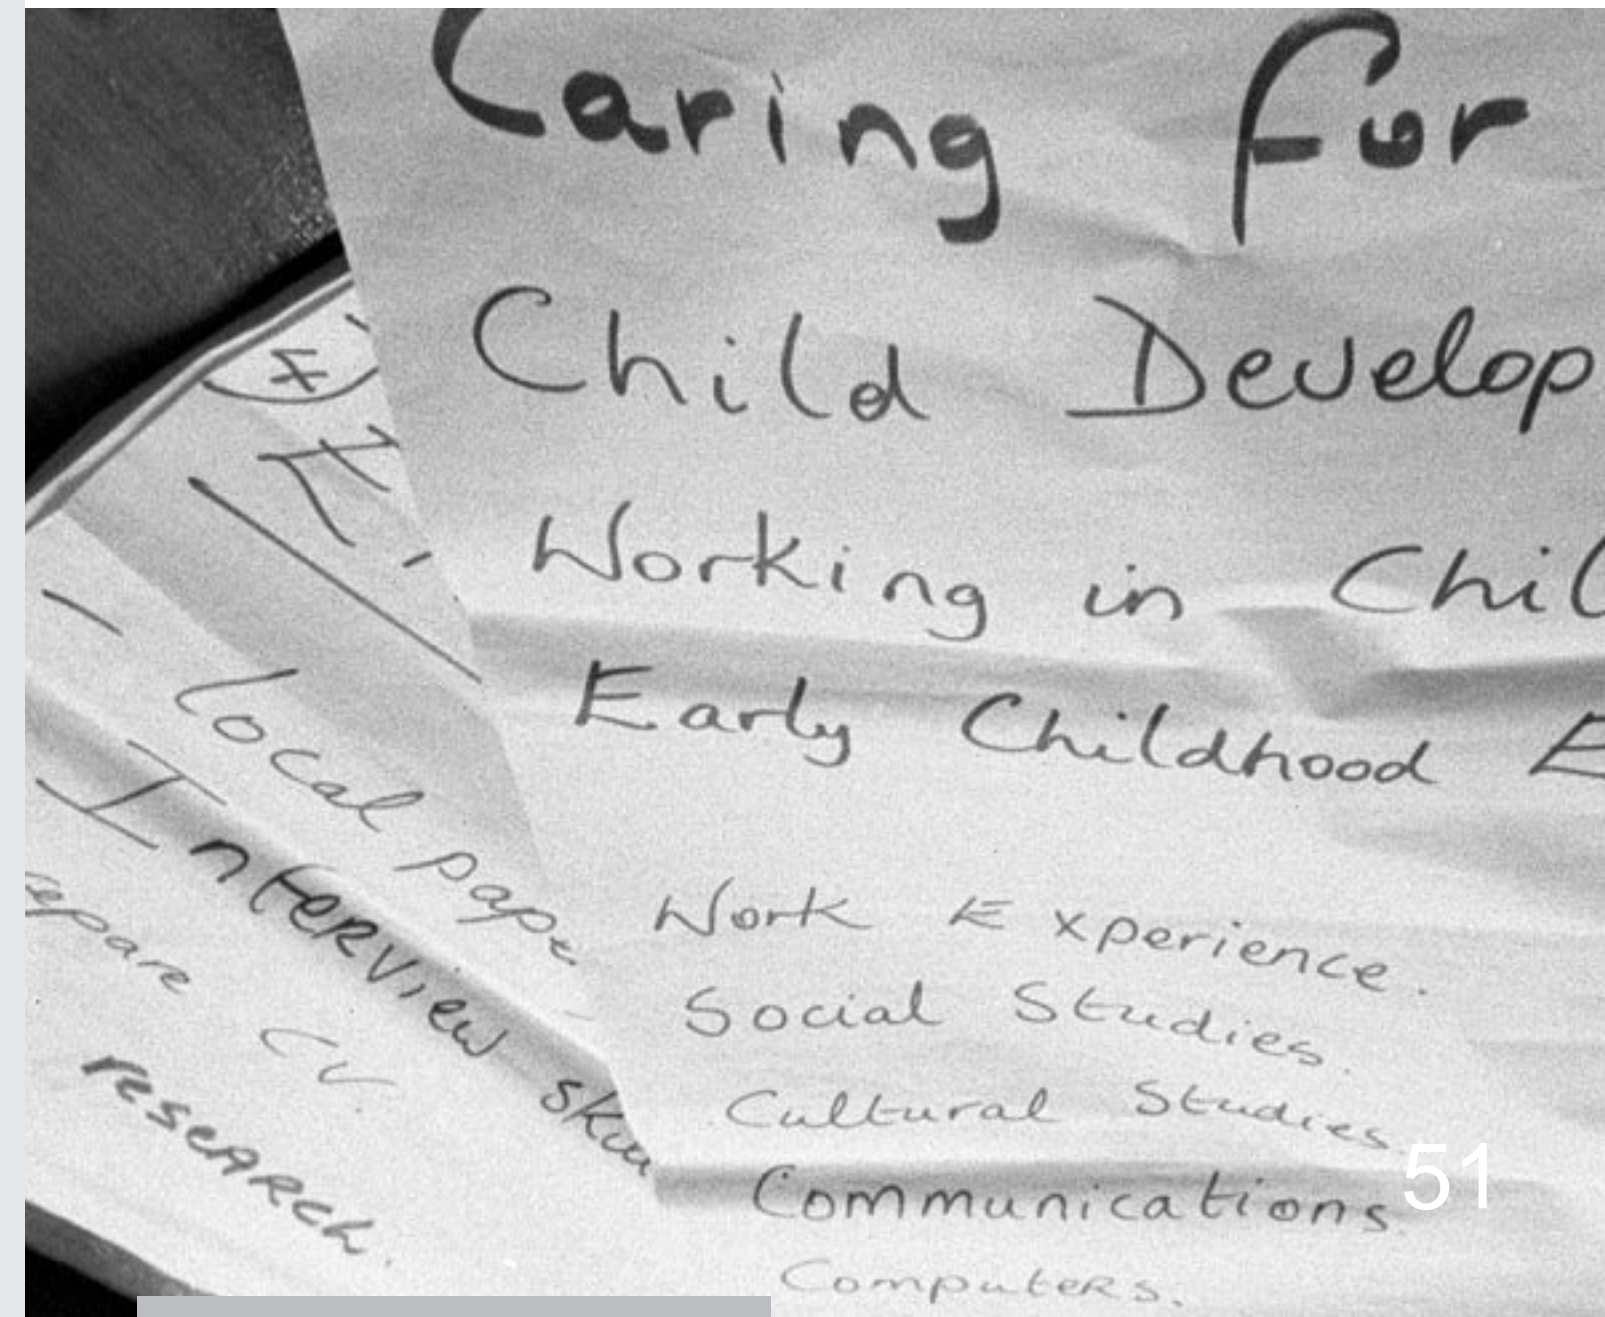 Caring for
Child Develop
Working in Chil
Early Childhood E
Work Experience.
Social Studies.
Cultural Studies.
Communications.
Computers.
4
- Local pape
Interview skil
epare CV
research.
51